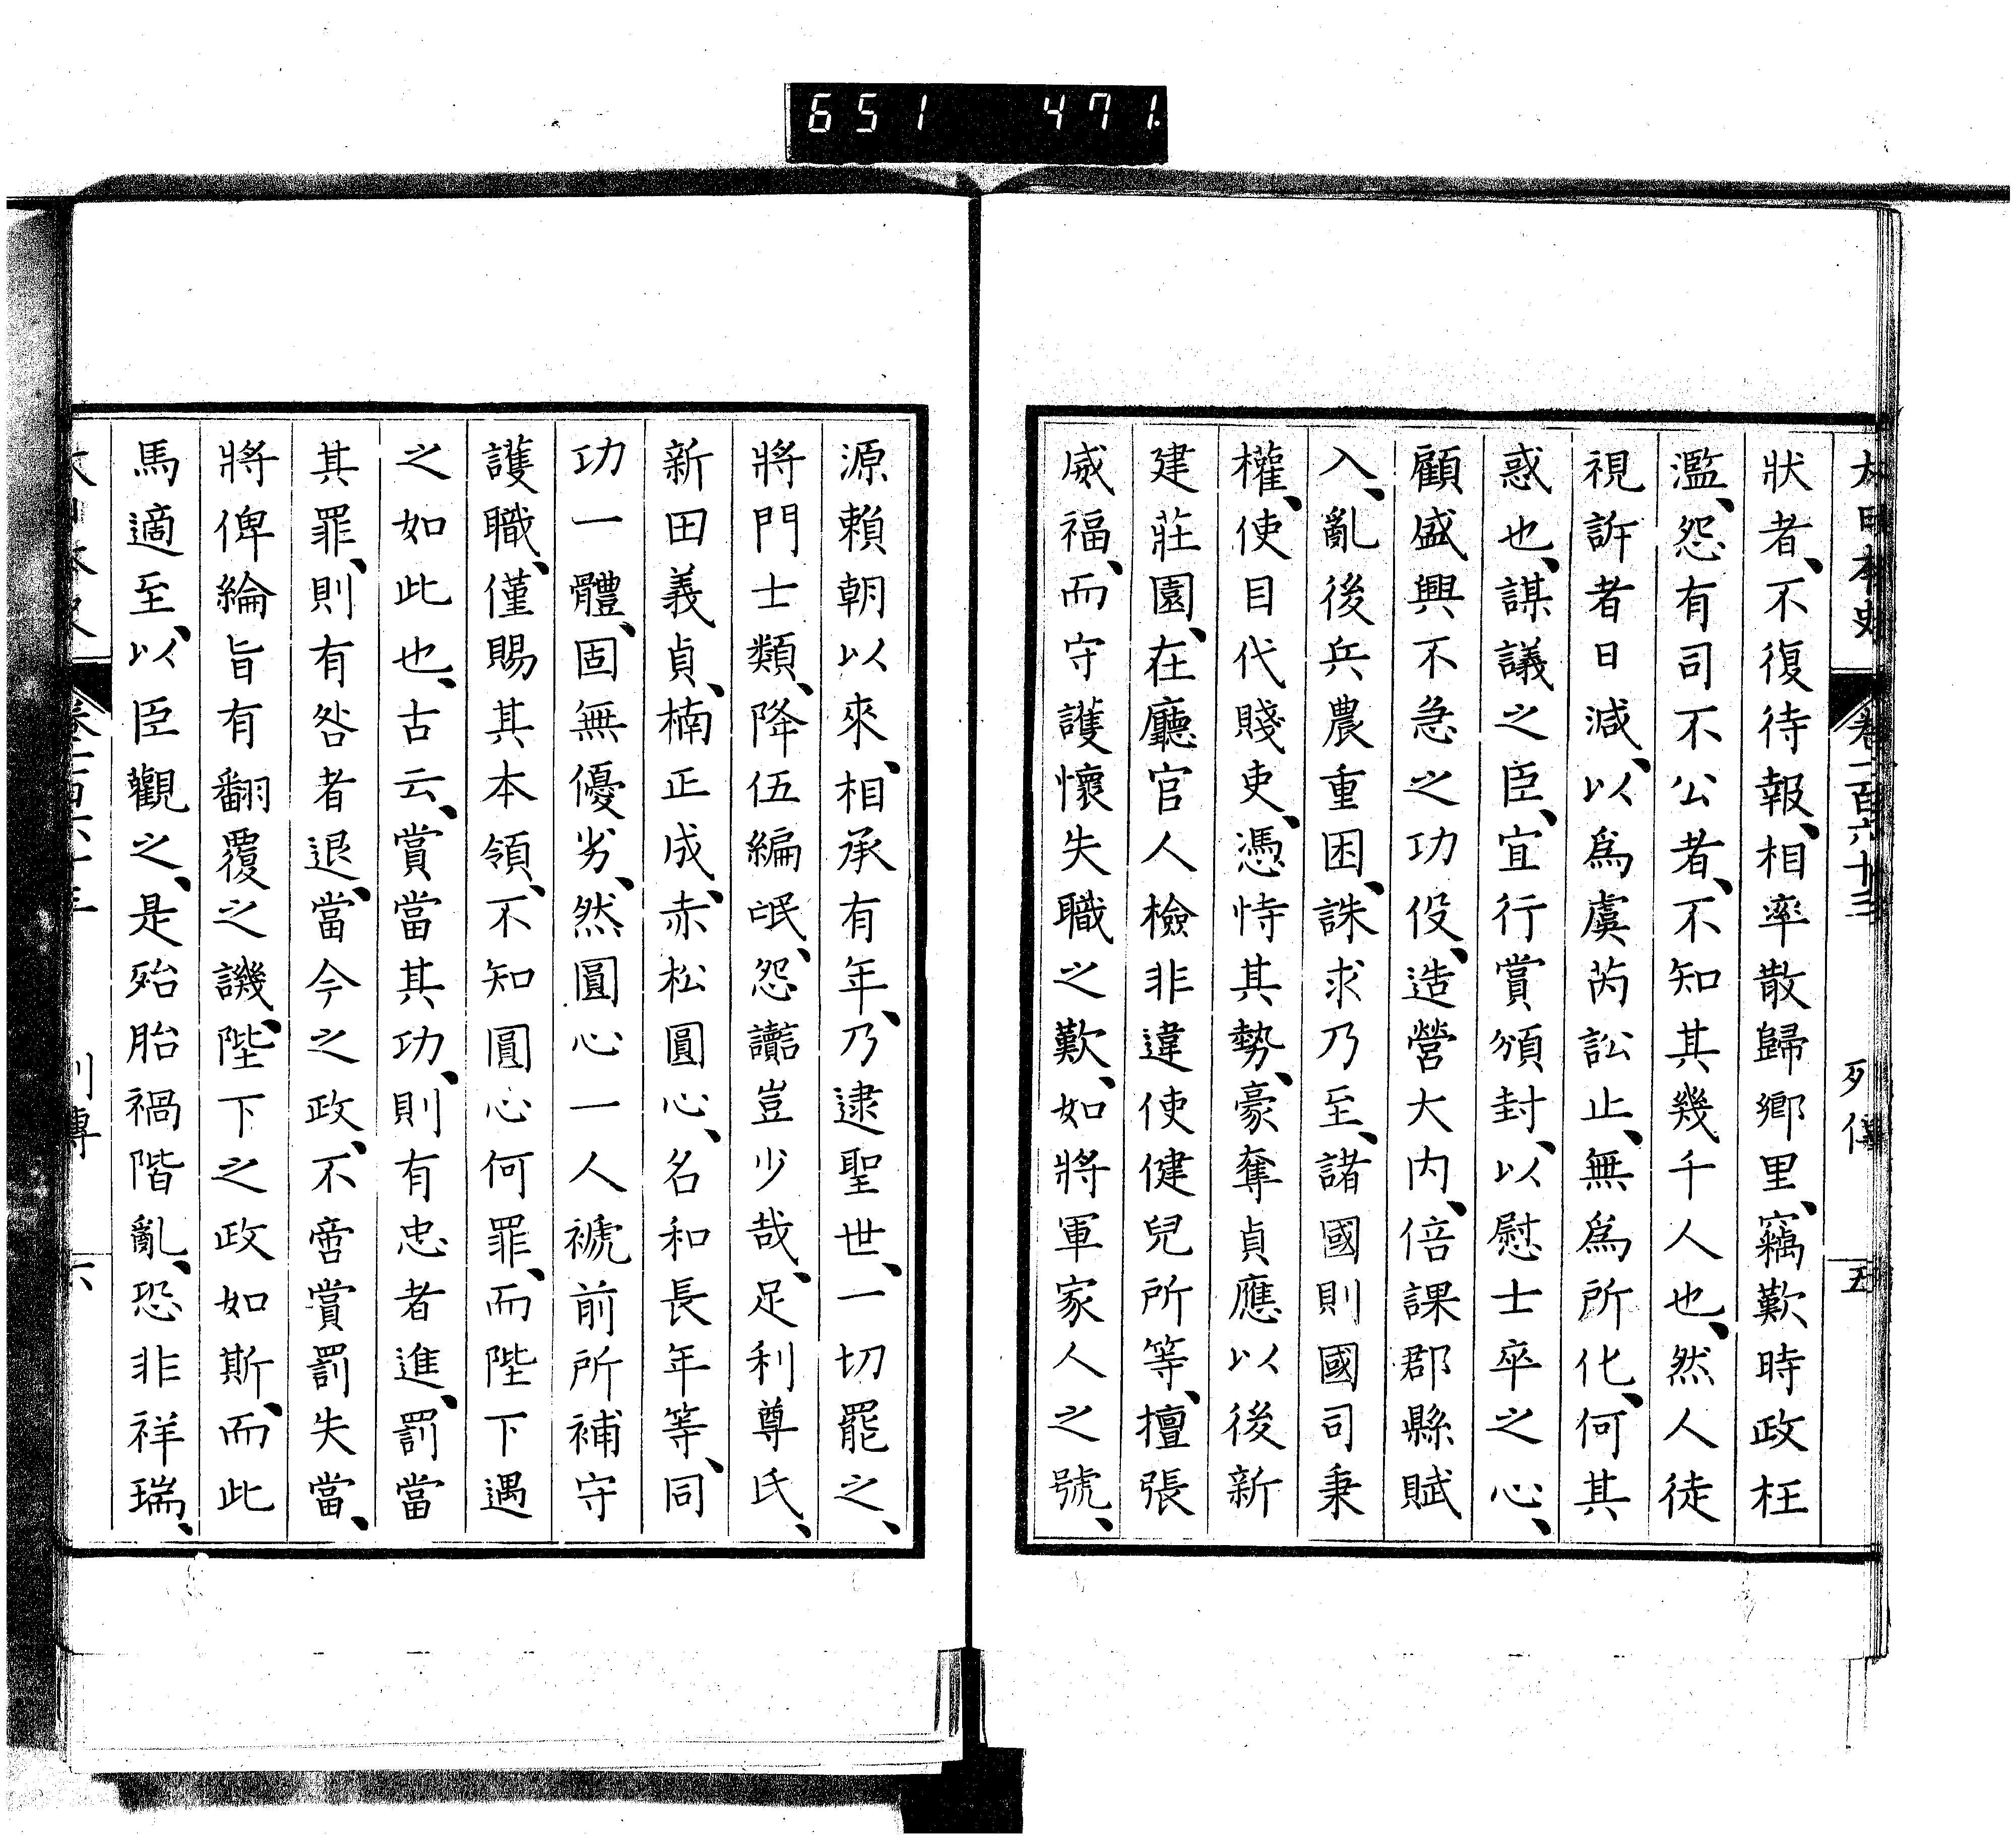 651 471
大日本史 卷一百六十三 列傳 五
狀者、不復待報、相率散歸鄉里、竊歎時政枉
濫、怨有司不公者、不知其幾千人也、然人徒
視訴者日減、以爲虞芮訟止、無爲所化、何其
惑也、謀議之臣、宜行賞頒封、以慰士卒之心、
顧盛興不急之功役、造營大内、倍課郡縣賦
入、亂後兵農重困、誅求乃至、諸國則國司秉
權、使目代賤吏、憑恃其勢、豪奪貞應以後新
建莊園、在廳官人檢非違使健兒所等、擅張
威福、而守護懷失職之歎、如將軍家人之號、
源賴朝以來、相承有年、乃逮聖世、一切罷之、
將門士類、降伍編氓、怨讟豈少哉、足利尊氏、
新田義貞、楠正成、赤松圓心、名和長年等、同
功一體、固無優劣、然圓心一人褫前所補守
護職、僅賜其本領、不知圓心何罪、而陛下遇
之如此也、古云、賞當其功、則有忠者進、罰當
其罪、則有咎者退、當今之政、不啻賞罰失當、
將俾綸旨有翻覆之譏、陛下之政如斯、而此
馬適至、以臣觀之、是殆胎禍階亂、恐非祥瑞、